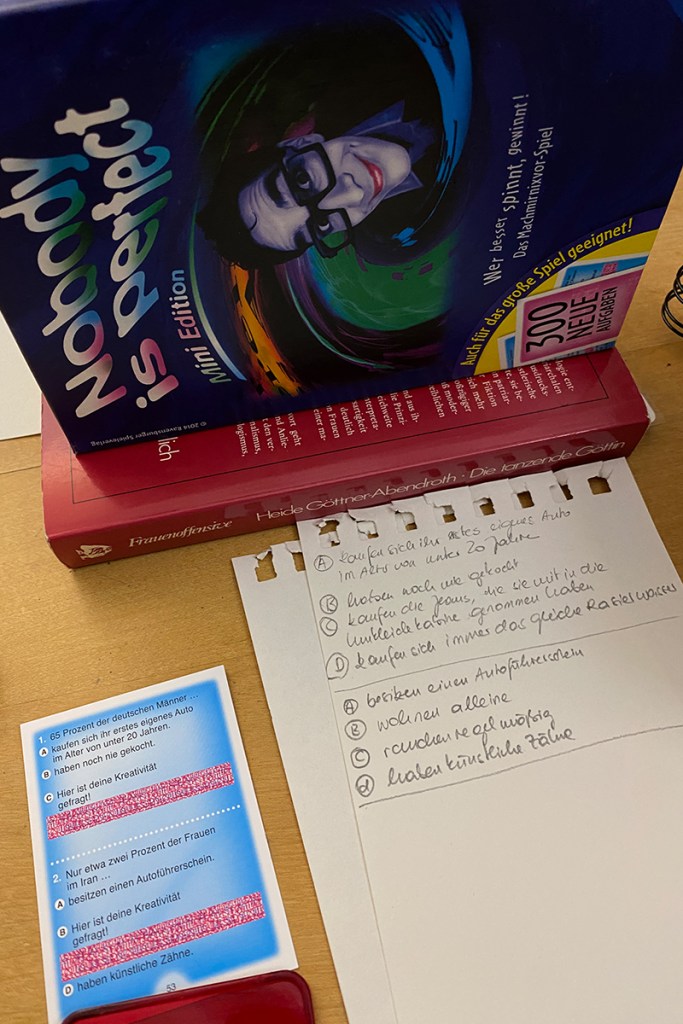 Nobody
is perfect
Mini Edition
Wer besser spinnt, gewinnt!
Das Machmirnixvor-Spiel
Auch für das große Spiel geeignet!
300
NEUE
AUFGABEN
© 2014 Ravensburger Spieleverlag
Frauenoffensive Heide Göttner-Abendroth · Die tanzende Göttin
A kaufen sich ihr erstes eigenes Auto
im Alter von unter 20 Jahre
B haben noch nie gekocht
C kaufen die Jeans, die sie mit in die
Umkleidekabine genommen haben
D kaufen sich immer das gleiche Rasierwasser
A besitzen einen Autoführerschein
B wohnen alleine
C rauchen regelmäßig
d haben künstliche Zähne
1. 65 Prozent der deutschen Männer ...
A kaufen sich ihr erstes eigenes Auto
im Alter von unter 20 Jahren.
B haben noch nie gekocht.
C Hier ist deine Kreativität
gefragt!
2. Nur etwa zwei Prozent der Frauen
im Iran ...
A besitzen einen Autoführerschein.
B Hier ist deine Kreativität
gefragt!
D haben künstliche Zähne.
53